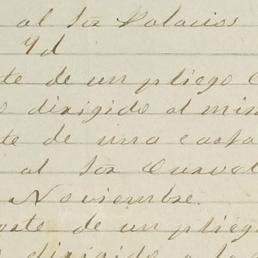 al Sor Palacios
Yd
te de un pliego
dirigido al min
te de una carta
al Sor Curvel
Noviembre.
orte de un pliego
dirigido a la